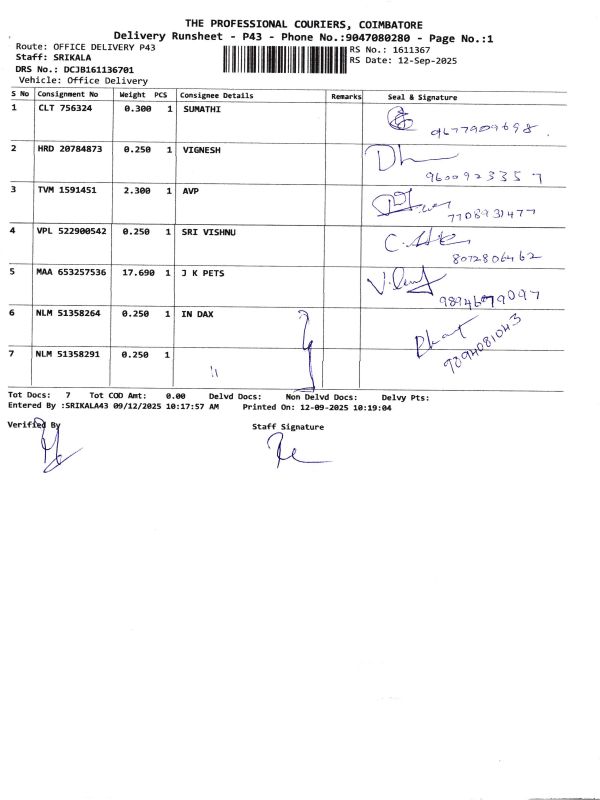 THE PROFESSIONAL COURIERS, COIMBATORE
Delivery Runsheet - P43 - Phone No.:9047080280 - Page No.:1
Route: OFFICE DELIVERY P43
RS No.: 1611367
Staff: SRIKALA
RS Date: 12-Sep-2025
DRS No.: DCJB161136701
Vehicle: Office Delivery
S No Consignment No Weight PCS Consignee Details Remarks Seal & Signature
1 CLT 756324 0.300 1 SUMATHI
9677909698.
2 HRD 20784873 0.250 1 VIGNESH
9600923357
3 TVM 1591451 2.300 1 AVP
7708931477
4 VPL 522900542 0.250 1 SRI VISHNU
8072806462
5 MAA 653257536 17.690 1 J K PETS
9894679097
6 NLM 51358264 0.250 1 IN DAX
9894081043
7 NLM 51358291 0.250 1 "
Tot Docs: 7 Tot COD Amt: 0.00 Delvd Docs: Non Delvd Docs: Delvy Pts:
Entered By :SRIKALA43 09/12/2025 10:17:57 AM Printed On: 12-09-2025 10:19:04
Verified By
Staff Signature